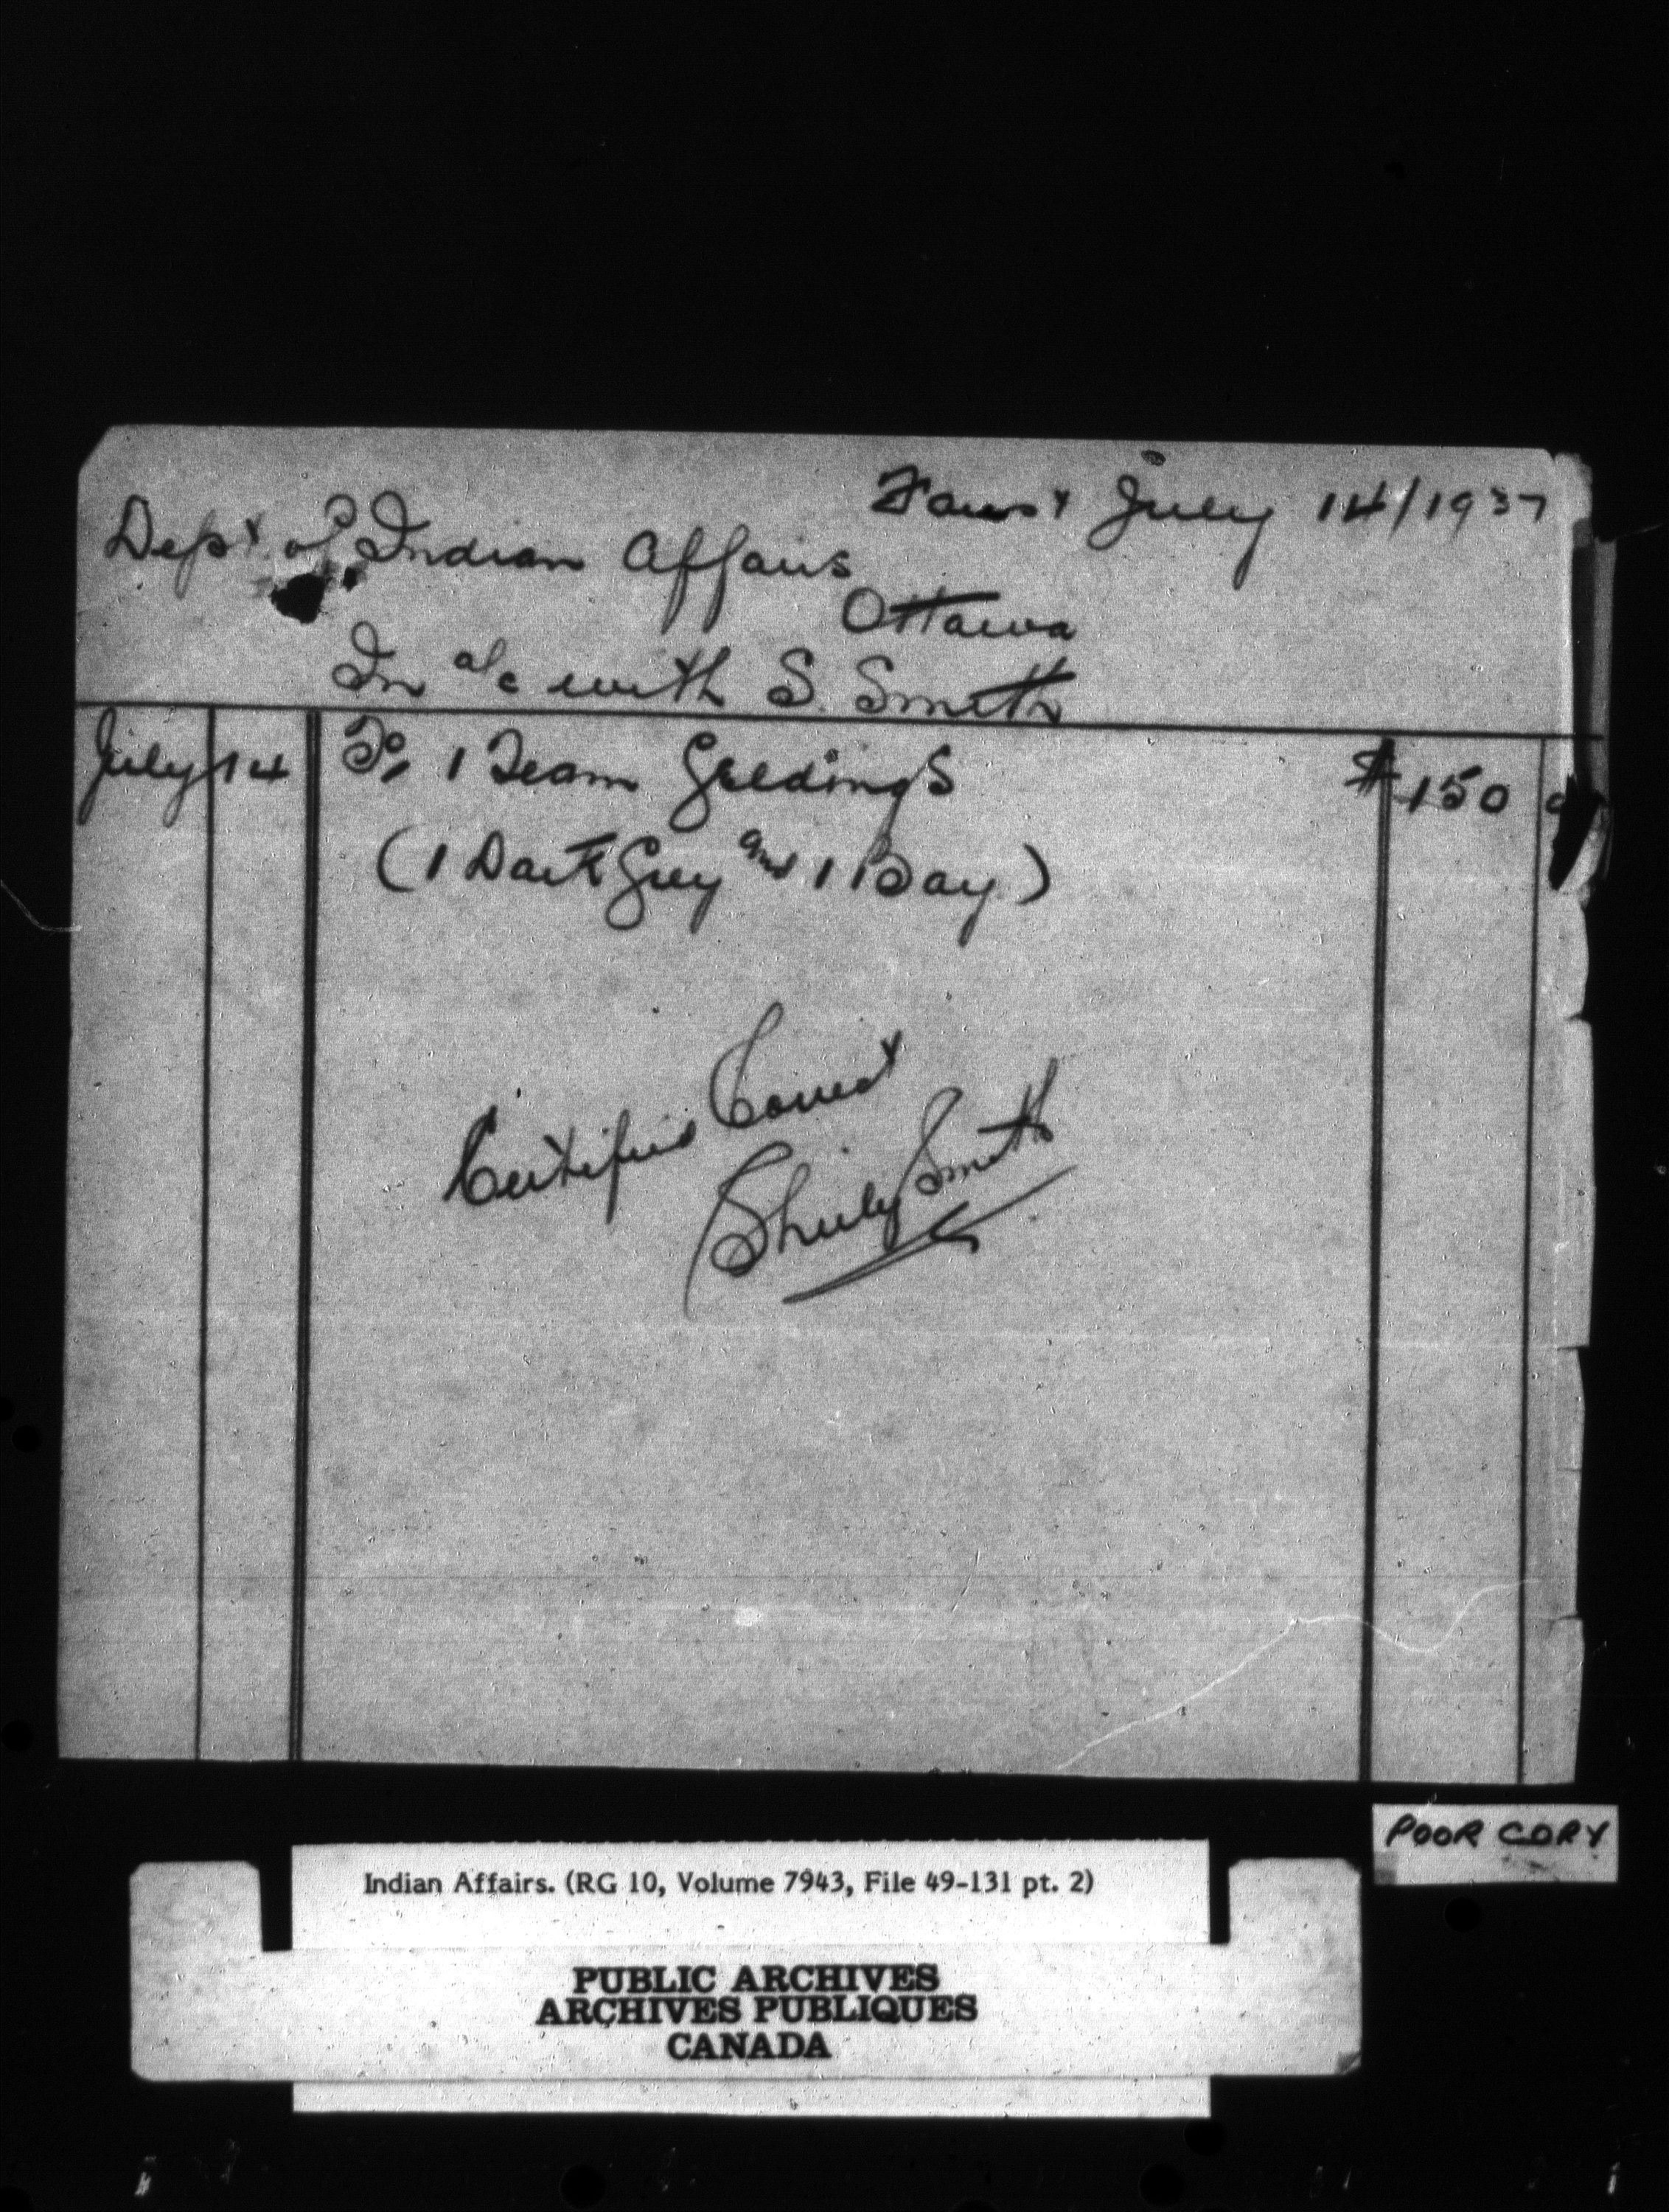 Faust July 14/1937
Dept of Indian Affairs
Ottawa
In a/c with S. Smith
July 14 To 1 Team Geldings $150
(1 Dark Grey and 1 Bay)
Certified Correct
Shirley Smith
POOR COPY
Indian Affairs. (RG 10, Volume 7943, File 49-131 pt. 2)
PUBLIC ARCHIVES
ARCHIVES PUBLIQUES
CANADA